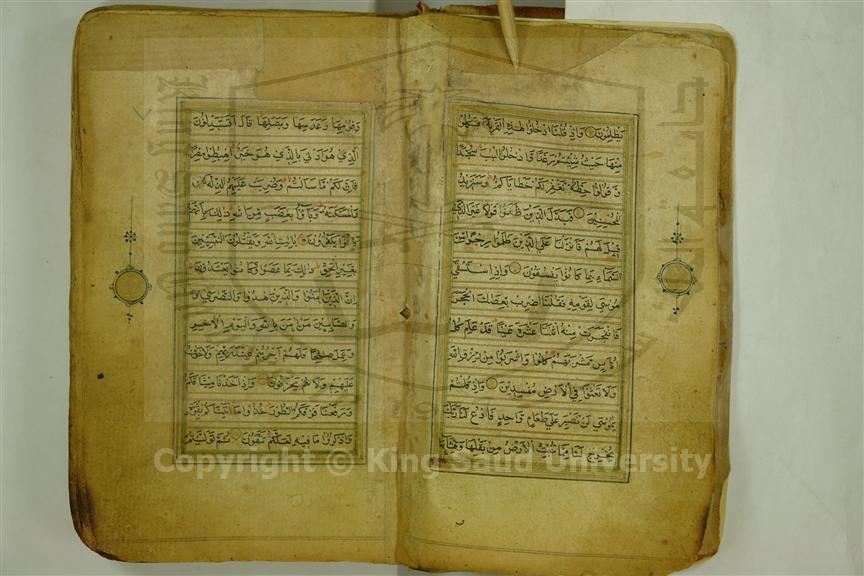 يظلمون واذ قلنا ادخلوا هذه القرية فكلوا
منها حيث شئتم رغدا وادخلوا الباب سجدا
وقولوا حطة نغفر لكم خطاياكم وسنزيد
المحسنين فبدل الذين ظلموا قولا غير الذي
قيل لهم فانزلنا على الذين ظلموا رجزا من
السماء بما كانوا يفسقون واذ استسقى
موسى لقومه فقلنا اضرب بعصاك الحجر
فانفجرت منه اثنتا عشرة عينا قد علم كل
اناس مشربهم كلوا واشربوا من رزق الله
ولا تعثوا في الارض مفسدين واذ قلتم
يموسى لن نصبر على طعام واحد فادع لنا ربك
يخرج لنا مما تنبت الارض من بقلها وقثائها
وفومها وعدسها وبصلها قال اتستبدلون
الذي هو ادنى بالذي هو خير اهبطوا مصرا
فان لكم ما سالتم وضربت عليهم الذلة
والمسكنة وباؤ بغضب من الله ذلك بانهم
كانوا يكفرون بايت الله ويقتلون النبيين
بغير الحق ذلك بما عصوا وكانوا يعتدون
ان الذين امنوا والذين هادوا والنصرى
والصابين من امن بالله واليوم الاخر
وعمل صالحا فلهم اجرهم عند ربهم ولا خوف
عليهم ولا هم يحزنون واذ اخذنا ميثاقكم
ورفعنا فوقكم الطور خذوا ما اتيناكم بقوة
واذكروا ما فيه لعلكم تتقون ثم توليتم
Copyright © King Saud University